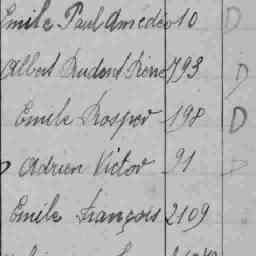 Emile Paul Amédée 10 D
Albert Prudent Pierre 793 D
Emile Prosper 198 D
Adrien Victor 91 D
Emile François 2109